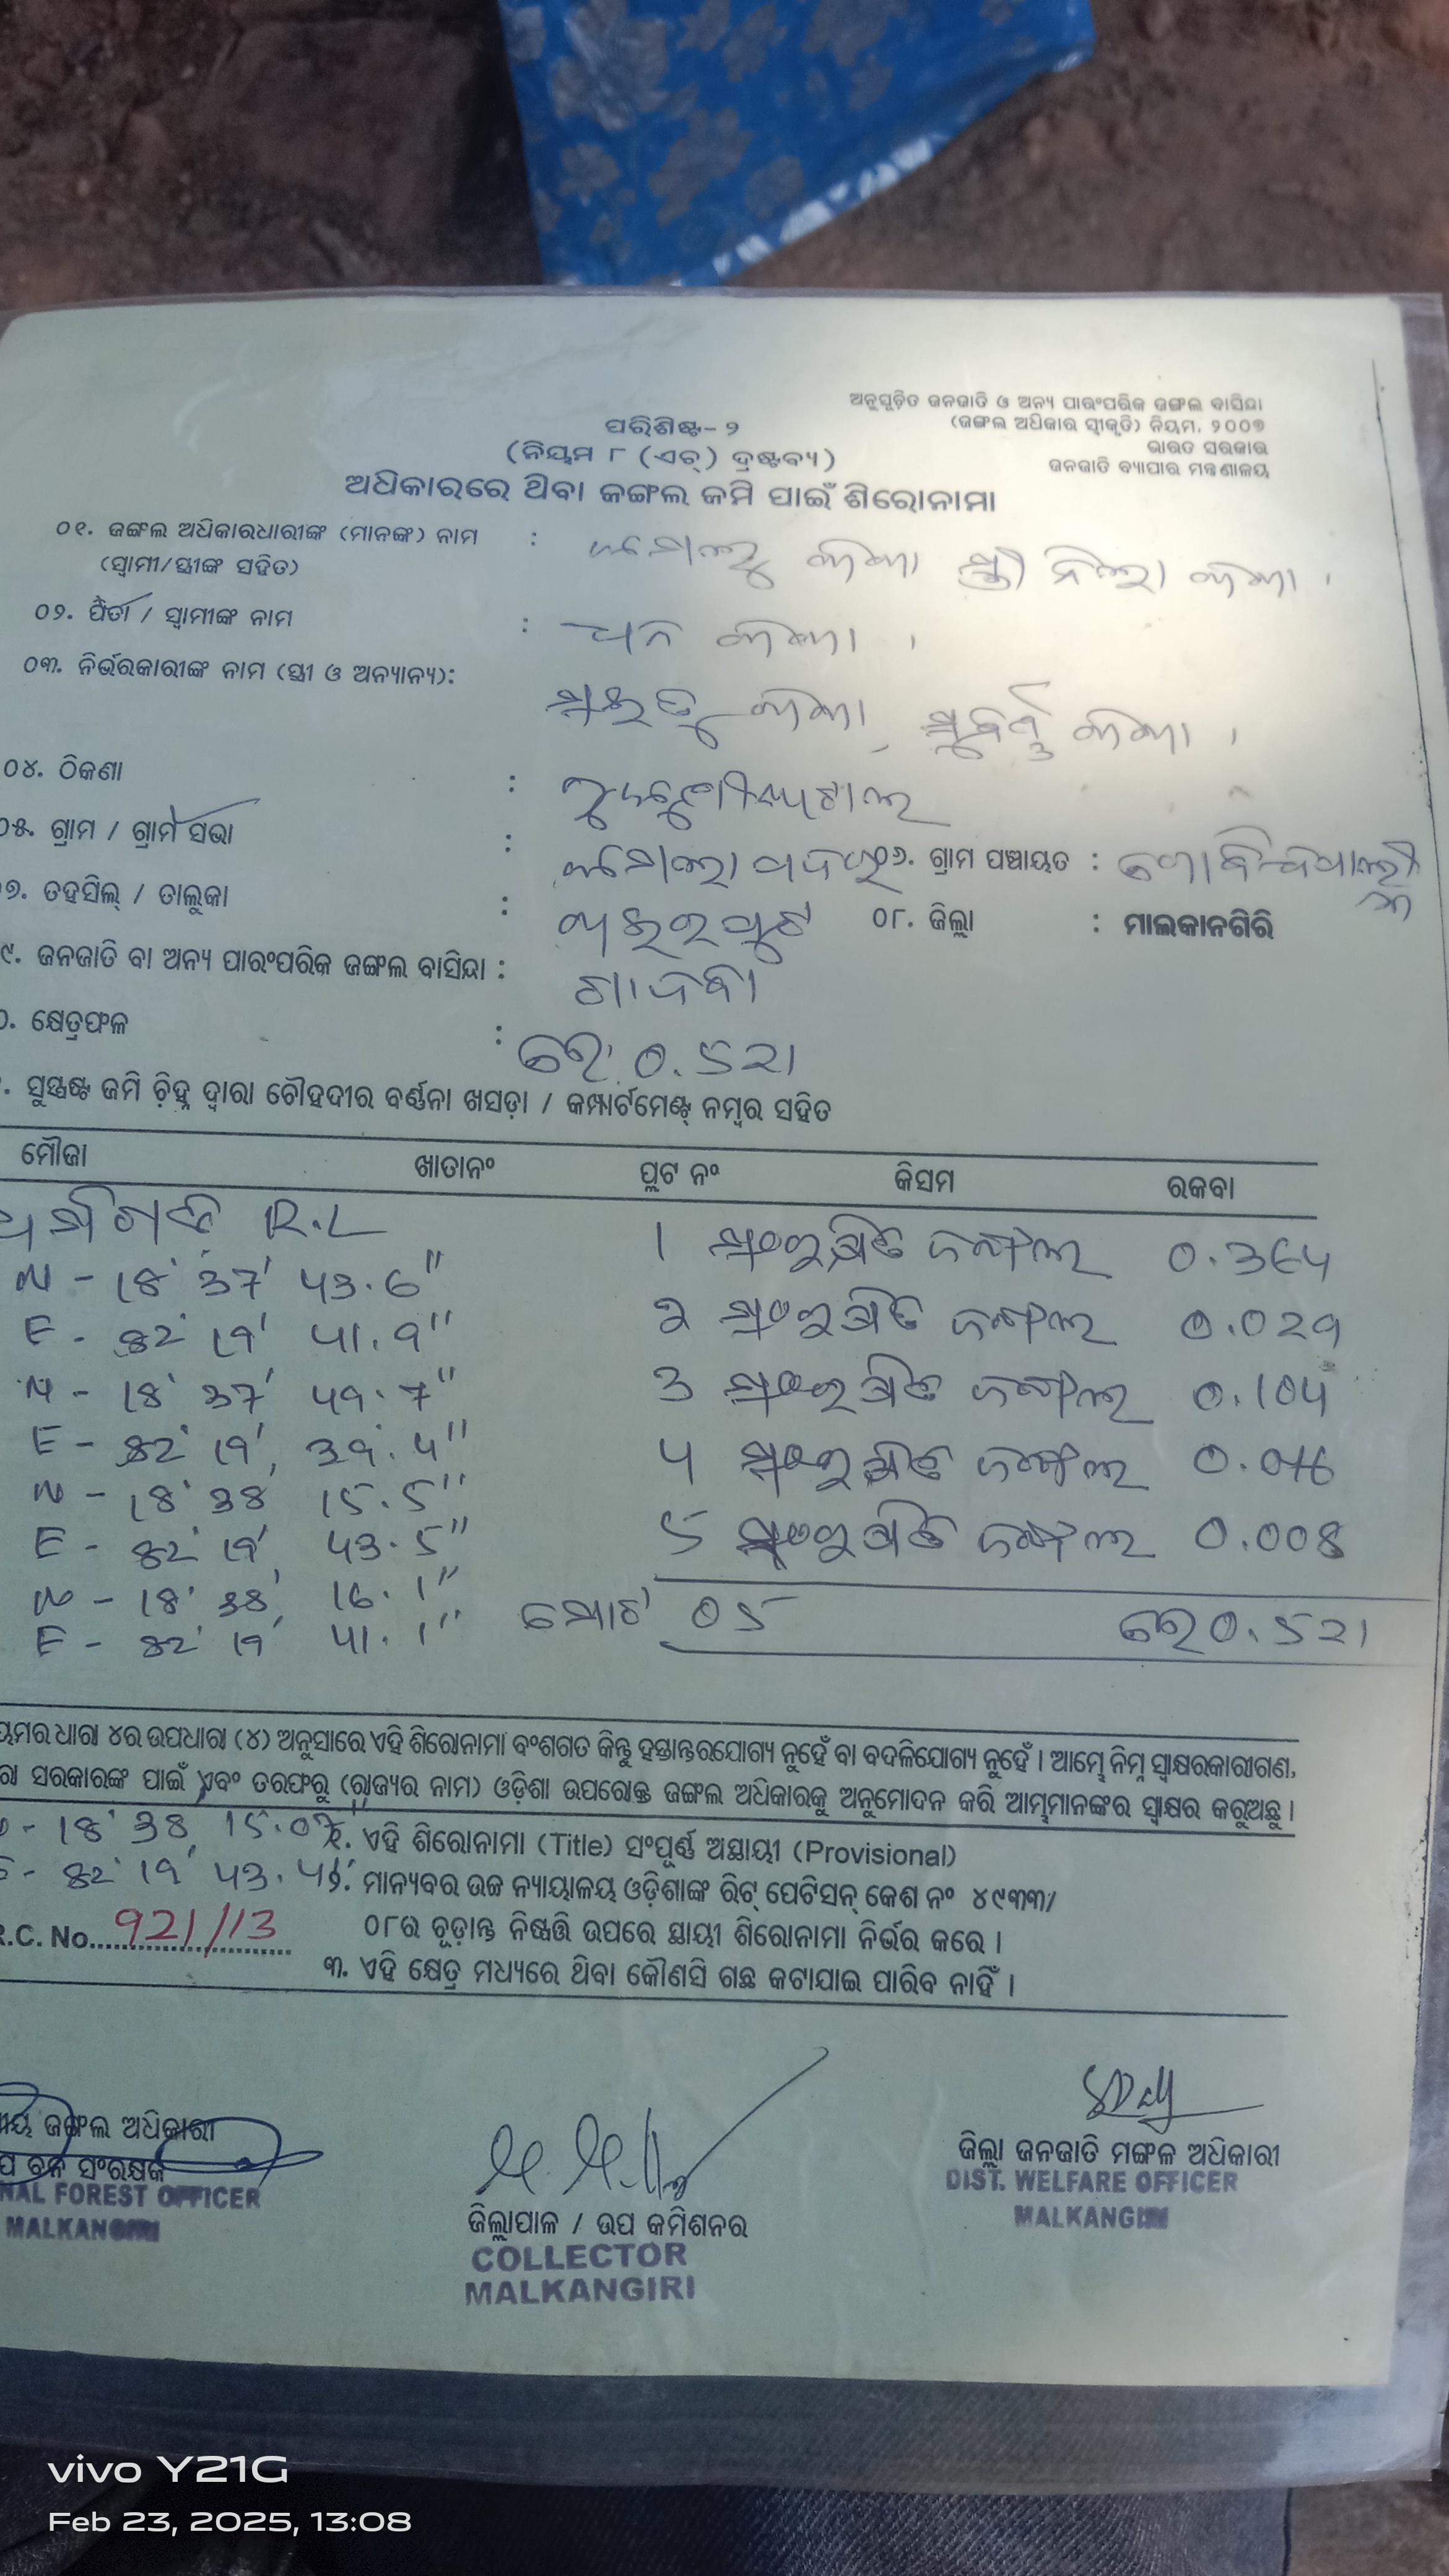 ଅନୁସୂଚିତ ଜନଜାତି ଓ ଅନ୍ୟ ପାରଂପରିକ ଜଙ୍ଗଲ ବାସିନ୍ଦା
(ଜଙ୍ଗଲ ଅଧିକାର ସ୍ୱୀକୃତି) ନିୟମ, ୨୦୦୭
ଭାରତ ସରକାର
ଜନଜାତି ବ୍ୟାପାର ମନ୍ତ୍ରଣାଳୟ
ପରିଶିଷ୍ଟ- ୨
(ନିୟମ ୮ (ଏଚ୍) ଦ୍ରଷ୍ଟବ୍ୟ)
ଅଧିକାରରେ ଥିବା ଜଙ୍ଗଲ ଜମି ପାଇଁ ଶିରୋନାମା
୦୧. ଜଙ୍ଗଲ ଅଧିକାରଧାରୀଙ୍କ (ମାନଙ୍କ) ନାମ :
(ସ୍ୱାମୀ/ସ୍ତ୍ରୀଙ୍କ ସହିତ)
୦୨. ପିତା / ସ୍ୱାମୀଙ୍କ ନାମ :
୦୩. ନିର୍ଭରକାରୀଙ୍କ ନାମ (ସ୍ତ୍ରୀ ଓ ଅନ୍ୟାନ୍ୟ):
୦୪. ଠିକଣା :
୦୫. ଗ୍ରାମ / ଗ୍ରାମ ସଭା : ୦୬. ଗ୍ରାମ ପଞ୍ଚାୟତ :
୦୭. ତହସିଲ୍ / ତାଲୁକା : ୦୮. ଜିଲ୍ଲା : ମାଲକାନଗିରି
୯. ଜନଜାତି ବା ଅନ୍ୟ ପାରଂପରିକ ଜଙ୍ଗଲ ବାସିନ୍ଦା : ଗାଦବା
୦. କ୍ଷେତ୍ରଫଳ : ହେ: 0.521
ସୁସ୍ପଷ୍ଟ ଜମି ଚିହ୍ନ ଦ୍ୱାରା ଚୌହଦୀର ବର୍ଣ୍ଣନା ଖସଡ଼ା / କମ୍ପାର୍ଟମେଣ୍ଟ୍ ନମ୍ବର ସହିତ
ମୌଜା ଖାତାନଂ ପ୍ଲଟ ନଂ କିସମ ରକବା
R.L 1 ସଂରକ୍ଷିତ ଜଙ୍ଗଲ 0.364
N - 18° 37' 43.6"
E - 82° 19' 41.9" 2 ସଂରକ୍ଷିତ ଜଙ୍ଗଲ 0.029
N - 18° 37' 49.7" 3 ସଂରକ୍ଷିତ ଜଙ୍ଗଲ 0.104
E - 82° 19' 39.4" 4 ସଂରକ୍ଷିତ ଜଙ୍ଗଲ
N - 18° 38' 15.5"
E - 82° 19' 43.5" 5 ସଂରକ୍ଷିତ ଜଙ୍ଗଲ 0.008
N - 18° 38' 16.1"
E - 82° 19' 41.1" ମୋଟ 05 ହେ 0.521
ୟମର ଧାରା ୪ର ଉପଧାରା (୪) ଅନୁସାରେ ଏହି ଶିରୋନାମା ବଂଶଗତ କିନ୍ତୁ ହସ୍ତାନ୍ତରଯୋଗ୍ୟ ନୁହେଁ ବା ବଦଳିଯୋଗ୍ୟ ନୁହେଁ । ଆମ୍ଭେ ନିମ୍ନ ସ୍ୱାକ୍ଷରକାରୀଗଣ,
ସରକାରଙ୍କ ପାଇଁ ଏବଂ ତରଫରୁ (ରାଜ୍ୟର ନାମ) ଓଡ଼ିଶା ଉପରୋକ୍ତ ଜଙ୍ଗଲ ଅଧିକାରକୁ ଅନୁମୋଦନ କରି ଆମ୍ଭମାନଙ୍କର ସ୍ୱାକ୍ଷର କରୁଅଛୁ ।
- 18° 38'
୧. ଏହି ଶିରୋନାମା (Title) ସଂପୂର୍ଣ୍ଣ ଅସ୍ଥାୟୀ (Provisional)
- 82° 19'
୨. ମାନ୍ୟବର ଉଚ୍ଚ ନ୍ୟାୟାଳୟ ଓଡ଼ିଶାଙ୍କ ରିଟ୍ ପେଟିସନ୍ କେଶ ନଂ ୪୯୩୩/
୦୮ର ଚୂଡ଼ାନ୍ତ ନିଷ୍ପତ୍ତି ଉପରେ ସ୍ଥାୟୀ ଶିରୋନାମା ନିର୍ଭର କରେ ।
R.C. No. 921/13
୩. ଏହି କ୍ଷେତ୍ର ମଧ୍ୟରେ ଥିବା କୌଣସି ଗଛ କଟାଯାଇ ପାରିବ ନାହିଁ ।
ୀୟ ଜଙ୍ଗଲ ଅଧିକାରୀ
ପ ବନ ସଂରକ୍ଷକ
NAL FOREST OFFICER
MALKANGIRI
ଜିଲ୍ଲାପାଳ / ଉପ କମିଶନର
COLLECTOR
MALKANGIRI
ଜିଲ୍ଲା ଜନଜାତି ମଙ୍ଗଳ ଅଧିକାରୀ
DIST. WELFARE OFFICER
MALKANGIRI
vivo Y21G
Feb 23, 2025, 13:08